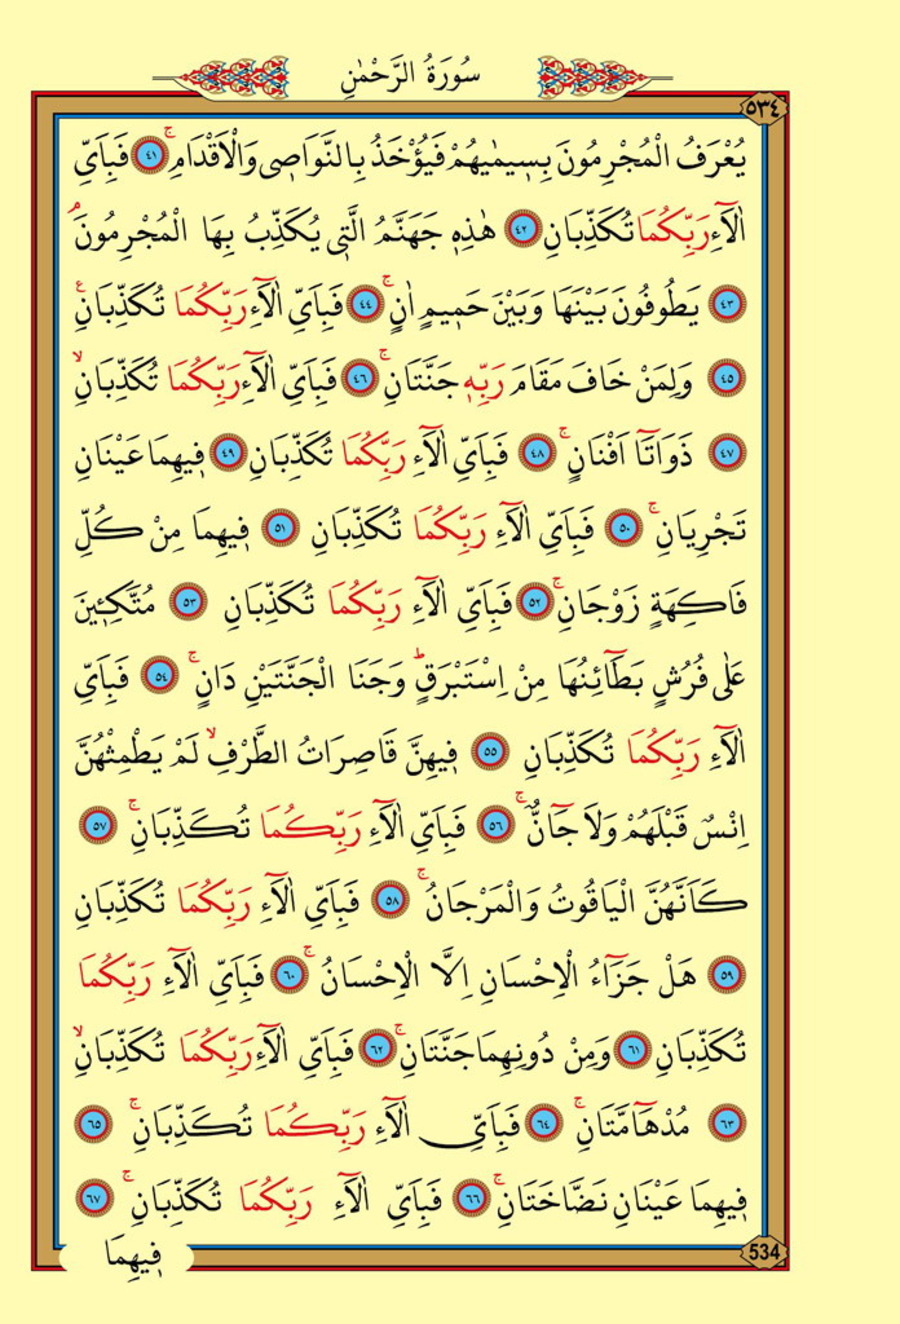 سُورَةُ الرَّحْمٰنِ
٥٣٤
يُعْرَفُ الْمُجْرِمُونَ بِسٖيمٰيهُمْ فَيُؤْخَذُ بِالنَّوَاصٖى وَالْاَقْدَامِۚ ﴿٤١﴾ فَبِاَىِّ
اٰلَٓاءِ رَبِّكُمَا تُكَذِّبَانِ ﴿٤٢﴾ هٰذِهٖ جَهَنَّمُ الَّتٖى يُكَذِّبُ بِهَا الْمُجْرِمُونَۢ
﴿٤٣﴾ يَطُوفُونَ بَيْنَهَا وَبَيْنَ حَمٖيمٍ اٰنٍۚ ﴿٤٤﴾ فَبِاَىِّ اٰلَٓاءِ رَبِّكُمَا تُكَذِّبَانِࣖ
﴿٤٥﴾ وَلِمَنْ خَافَ مَقَامَ رَبِّهٖ جَنَّتَانِۚ ﴿٤٦﴾ فَبِاَىِّ اٰلَٓاءِ رَبِّكُمَا تُكَذِّبَانِۙ
﴿٤٧﴾ ذَوَاتَٓا اَفْنَانٍۚ ﴿٤٨﴾ فَبِاَىِّ اٰلَٓاءِ رَبِّكُمَا تُكَذِّبَانِ ﴿٤٩﴾ فٖيهِمَا عَيْنَانِ
تَجْرِيَانِۚ ﴿٥٠﴾ فَبِاَىِّ اٰلَٓاءِ رَبِّكُمَا تُكَذِّبَانِ ﴿٥١﴾ فٖيهِمَا مِنْ كُلِّ
فَاكِهَةٍ زَوْجَانِۚ ﴿٥٢﴾ فَبِاَىِّ اٰلَٓاءِ رَبِّكُمَا تُكَذِّبَانِ ﴿٥٣﴾ مُتَّكِـٖٔينَ
عَلٰى فُرُشٍ بَطَٓائِنُهَا مِنْ اِسْتَبْرَقٍؕ وَجَنَا الْجَنَّتَيْنِ دَانٍۚ ﴿٥٤﴾ فَبِاَىِّ
اٰلَٓاءِ رَبِّكُمَا تُكَذِّبَانِ ﴿٥٥﴾ فٖيهِنَّ قَاصِرَاتُ الطَّرْفِۙ لَمْ يَطْمِثْهُنَّ
اِنْسٌ قَبْلَهُمْ وَلَا جَٓانٌّۚ ﴿٥٦﴾ فَبِاَىِّ اٰلَٓاءِ رَبِّكُمَا تُكَذِّبَانِۚ ﴿٥٧﴾
كَاَنَّهُنَّ الْيَاقُوتُ وَالْمَرْجَانُۚ ﴿٥٨﴾ فَبِاَىِّ اٰلَٓاءِ رَبِّكُمَا تُكَذِّبَانِ
﴿٥٩﴾ هَلْ جَزَٓاءُ الْاِحْسَانِ اِلَّا الْاِحْسَانُۚ ﴿٦٠﴾ فَبِاَىِّ اٰلَٓاءِ رَبِّكُمَا
تُكَذِّبَانِ ﴿٦١﴾ وَمِنْ دُونِهِمَا جَنَّتَانِۚ ﴿٦٢﴾ فَبِاَىِّ اٰلَٓاءِ رَبِّكُمَا تُكَذِّبَانِۙ
﴿٦٣﴾ مُدْهَٓامَّتَانِۚ ﴿٦٤﴾ فَبِاَىِّ اٰلَٓاءِ رَبِّكُمَا تُكَذِّبَانِۚ ﴿٦٥﴾
فٖيهِمَا عَيْنَانِ نَضَّاخَتَانِۚ ﴿٦٦﴾ فَبِاَىِّ اٰلَٓاءِ رَبِّكُمَا تُكَذِّبَانِۚ ﴿٦٧﴾
534
فٖيهِمَا